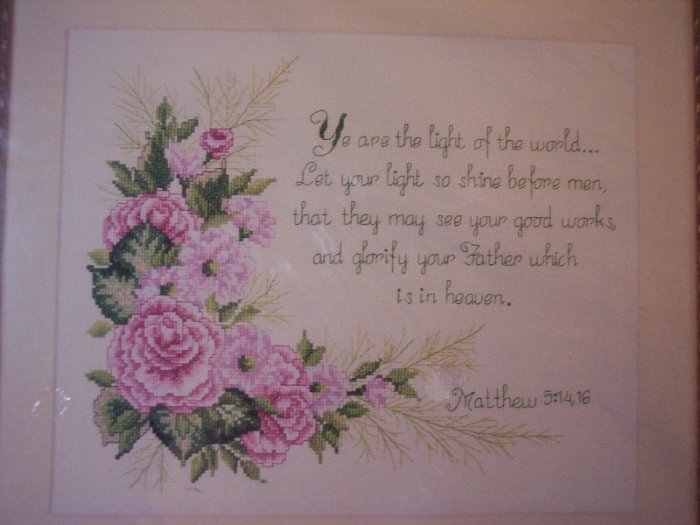 Ye are the light of the world...
Let your light so shine before men,
that they may see your good works,
and glorify your Father which
is in heaven.
Matthew 5:14,16